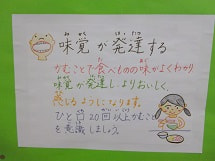 味覚が発達する
かむことで食べものの味がよくわかり、
味覚が発達しよりおいしく、
感じるようになります。
ひと口20回以上かむこと
を意識しましょう。